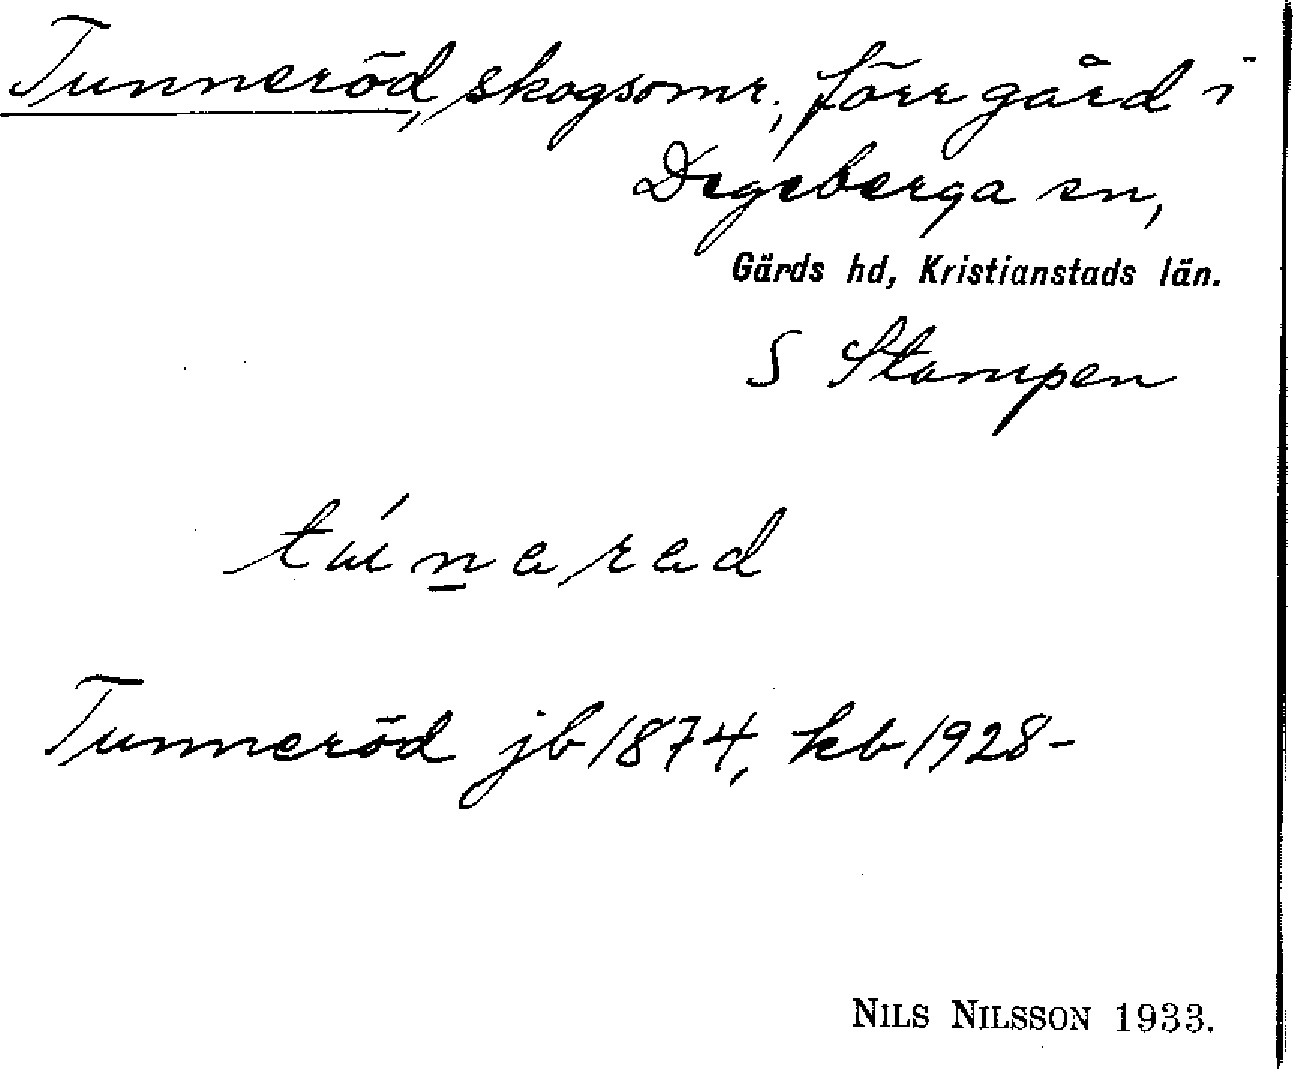 Tunneröd, skogsomr.; förr gård i
Degeberga sn,
Gärds hd, Kristianstads län.
S Stampen
Tunneröd jb 1874, kb 1928-
NILS NILSSON 1933.